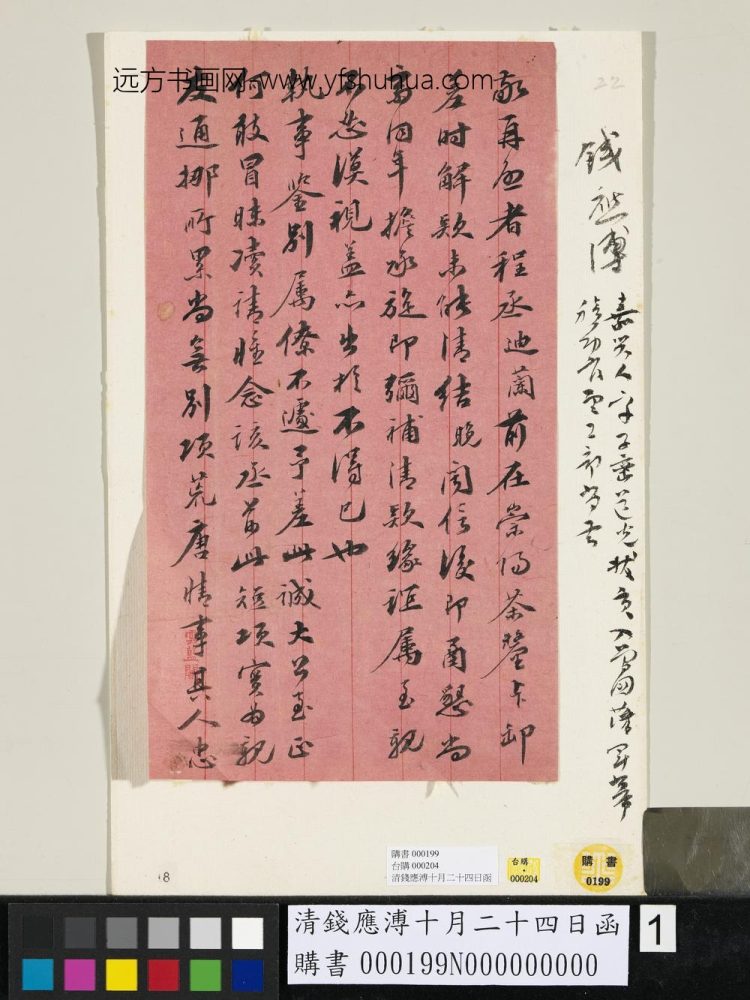 远方书画网-www.yfshuhua.com
22
錢應溥
嘉興人字子密道光拔貢入曾
積功官至工部尚書
敬再啟者程丞迪蘭前在崇陽茶釐卡卸
差時解款未能清結晚聞信後即函懇尚
同年擔承旋即彌補清款緣誼屬至親
漠視蓋亦出於不得已也
執事鑒別屬僚不遽予差此誠大公至正
何敢冒昧凟請惟念該丞前此短項實為親
友通挪所累尚無別項荒唐情事其人忠
購書 000199
台購 000204
清錢應溥十月二十四日函
台購
000204
購書
0199
18
清錢應溥十月二十四日函
購書 000199N000000000
1